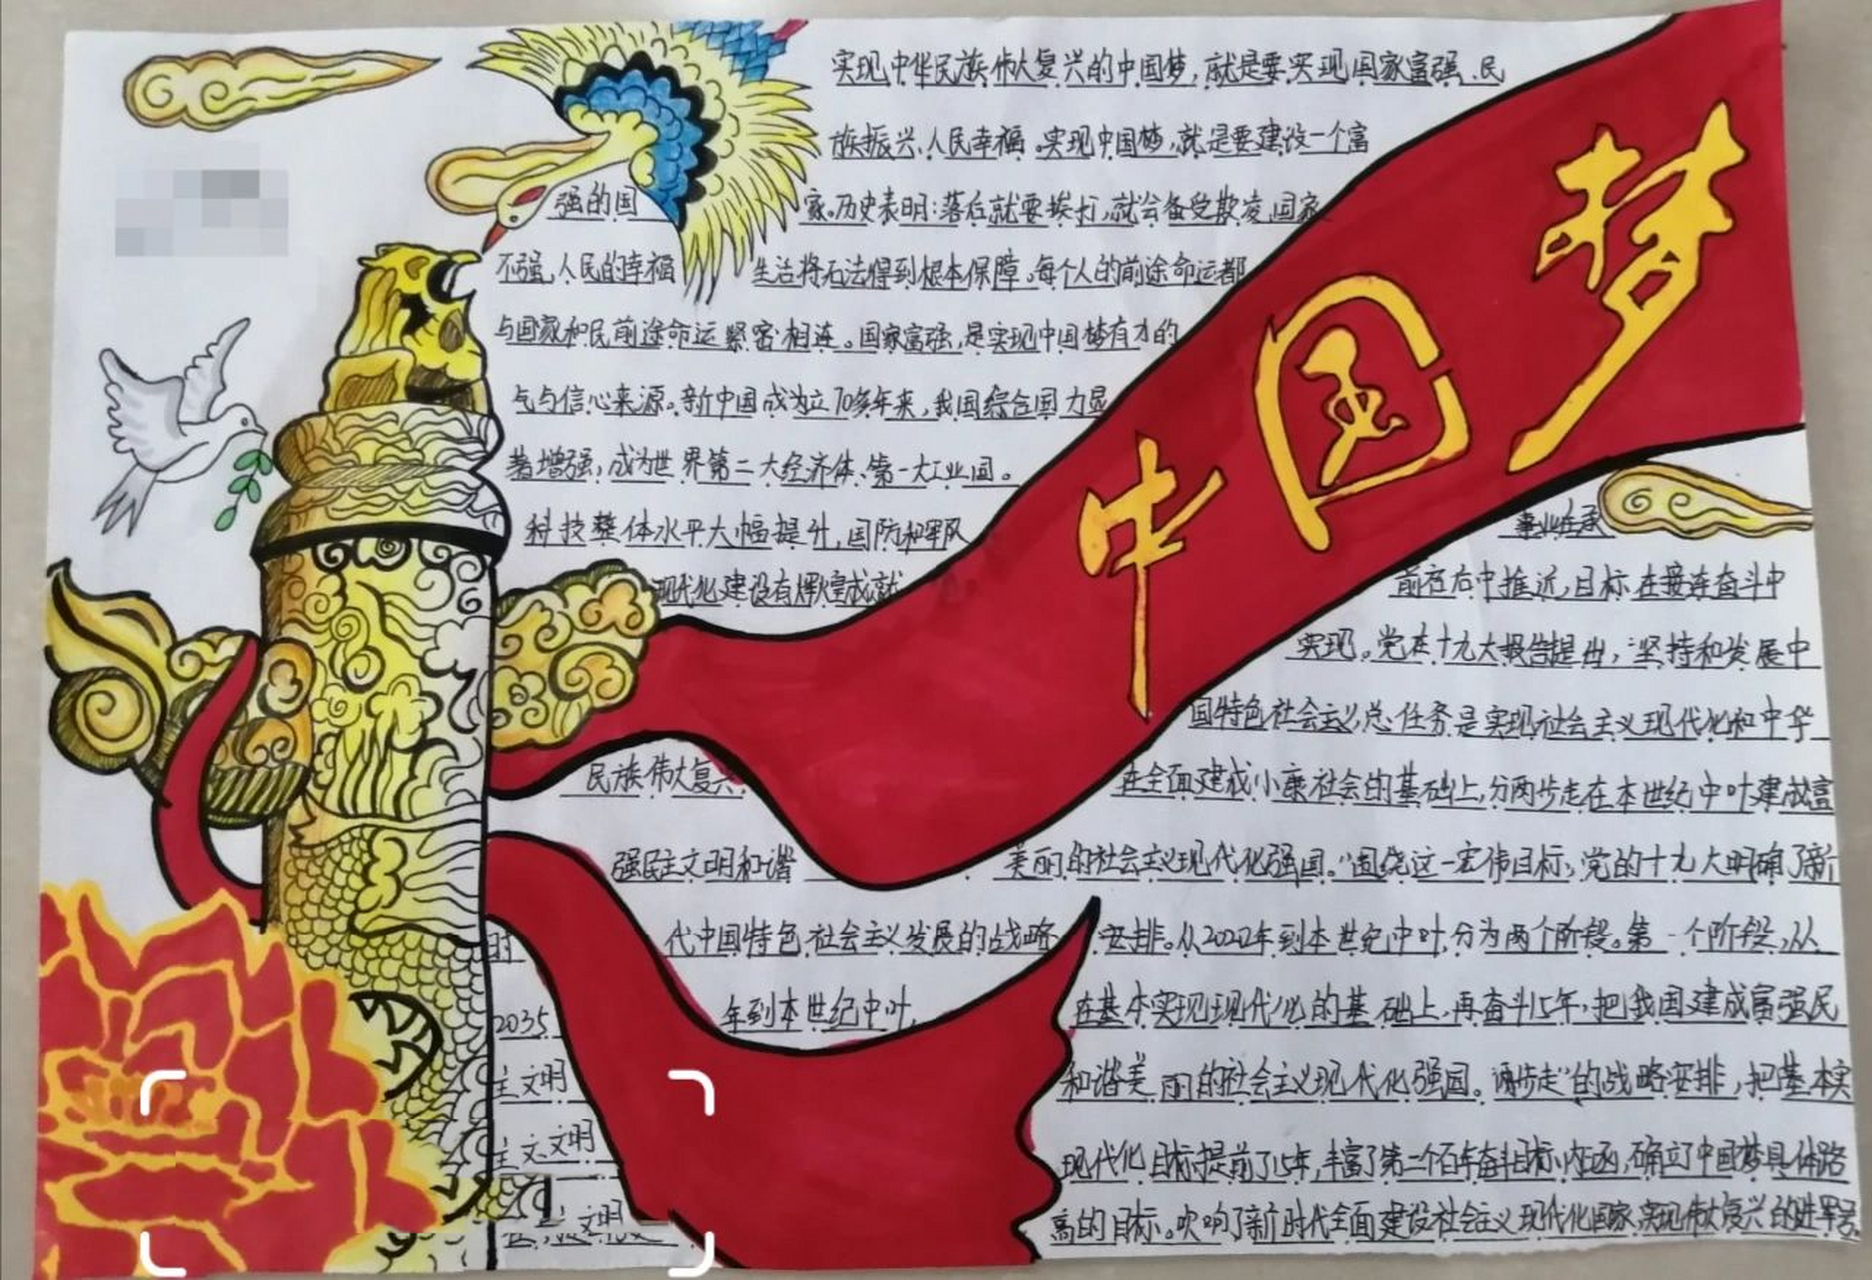 实现中华民族伟大复兴的中国梦，就是要实现国家富强、民
族振兴、人民幸福。实现中国梦，就是要建设一个富
强的国家。历史表明：落后就要挨打，就会备受欺凌，国家
不强，人民的幸福生活将无法得到根本保障。每个人的前途命运都
与国家和民前途命运紧密相连。国家富强，是实现中国梦有力的
气与信心来源。新中国成为立70多年来，我国综合国力显
著增强，成为世界第二大经济体、第一大工业国。
科技整体水平大幅提升，国防和军队
现代化建设有辉煌成就
中国梦
事业在承
前在右中推近，目标在接连奋斗中
实现。党在十九大报告提出，“坚持和发展中
国特色社会主义，总任务是实现社会主义现代化和中华
民族伟大复兴
在全面建成小康社会的基础上，分两步走在本世纪中叶建成富
强民主文明和谐美丽的社会主义现代化强国。”围绕这一宏伟目标，党的十九大明确了新
时代中国特色社会主义发展的战略安排。从2020年到本世纪中叶，分为两个阶段。第一个阶段，从
2035年到本世纪中叶，在基本实现现代化的基础上，再奋斗15年，把我国建成富强民
主文明和谐美丽的社会主义现代化强国。两步走”的战略安排，把基本实
主文文明现代化目标提前了15年，丰富了第二个百年奋斗目标内涵，确立了中国梦具体路
文明高的目标。吹响了新时代全面建设社会主义现代化国家，实现伟大复兴的进军号。